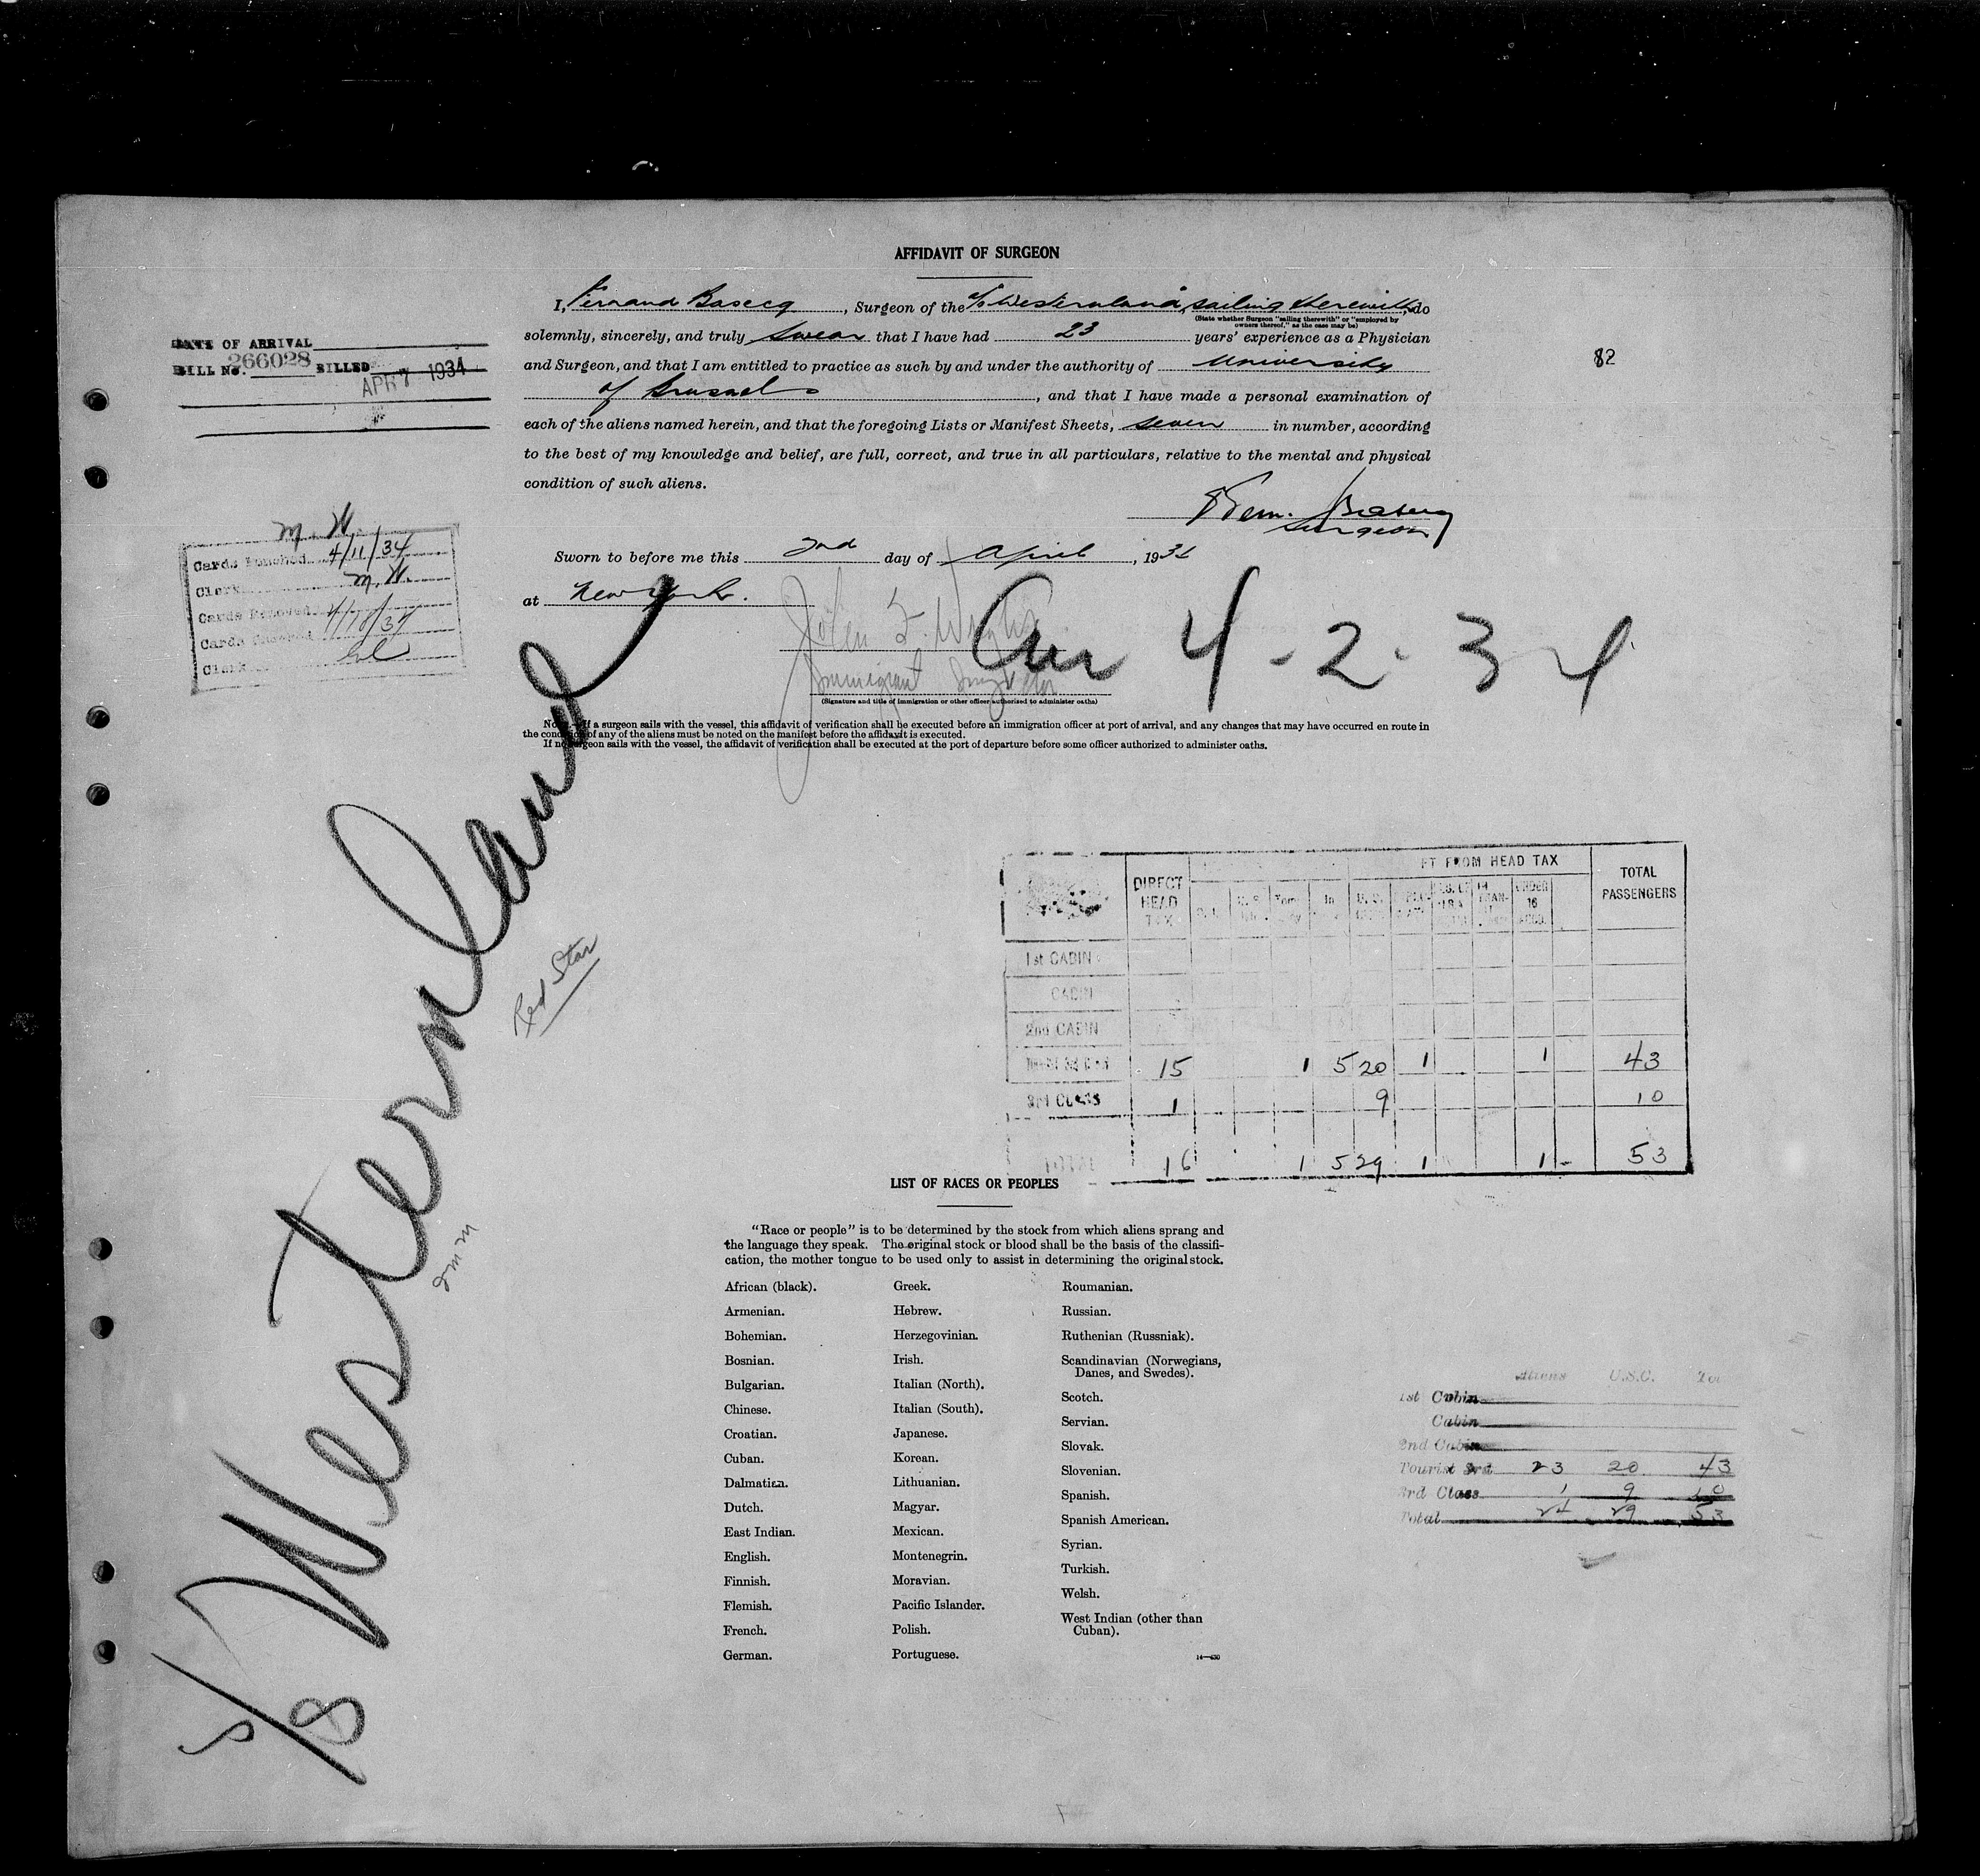 AFFIDAVIT OF SURGEON
I, Fernand Basecq, Surgeon of the S/S Westernland, sailing therewith, do
(State whether Surgeon "sailing therewith" or "employed by
owners thereof," as the case may be)
solemnly, sincerely, and truly swear that I have had 23 years' experience as a Physician
and Surgeon, and that I am entitled to practice as such by and under the authority of University
of Brussels, and that I have made a personal examination of
each of the aliens named herein, and that the foregoing Lists or Manifest Sheets, seven in number, according
to the best of my knowledge and belief, are full, correct, and true in all particulars, relative to the mental and physical
condition of such aliens.
Surgeon
Sworn to before me this 2nd day of April, 1934
at New York.
John F. Wright
Immigrant Inspector
(Signature and title of immigration or other officer authorized to administer oaths)
Arr 4-2-34
NOTE.—If a surgeon sails with the vessel, this affidavit of verification shall be executed before an immigration officer at port of arrival, and any changes that may have occurred en route in
the condition of any of the aliens must be noted on the manifest before the affidavit is executed.
If no surgeon sails with the vessel, the affidavit of verification shall be executed at the port of departure before some officer authorized to administer oaths.
DATE OF ARRIVAL
BILL No. 266028 BILLED APR 7 1934
82
M. W.
Cards Punched 4/11/34
Clerk M. W.
Cards Removed 4/18/34
Cards
Clerk
S/S Westernland
Red Star
DIRECT HEAD TAX
FROM HEAD TAX
TOTAL PASSENGERS
UNDER 16
1st CABIN
CABIN
2nd CABIN
15 1 5 20 1 1 43
3rd CLASS 1 9 10
TOTAL 16 1 5 29 1 1 53
LIST OF RACES OR PEOPLES
"Race or people" is to be determined by the stock from which aliens sprang and
the language they speak. The original stock or blood shall be the basis of the classifi-
cation, the mother tongue to be used only to assist in determining the original stock.
African (black).
Armenian.
Bohemian.
Bosnian.
Bulgarian.
Chinese.
Croatian.
Cuban.
Dalmatian.
Dutch.
East Indian.
English.
Finnish.
Flemish.
French.
German.
Greek.
Hebrew.
Herzegovinian.
Irish.
Italian (North).
Italian (South).
Japanese.
Korean.
Lithuanian.
Magyar.
Mexican.
Montenegrin.
Moravian.
Pacific Islander.
Polish.
Portuguese.
Roumanian.
Russian.
Ruthenian (Russniak).
Scandinavian (Norwegians,
Danes, and Swedes).
Scotch.
Servian.
Slovak.
Slovenian.
Spanish.
Spanish American.
Syrian.
Turkish.
Welsh.
West Indian (other than
Cuban).
14—430
Aliens U.S.C. Tot
1st Cabin
Cabin
2nd Cabin
Tourist 3rd 23 20 43
3rd Class 1 9 10
Total 24 29 53